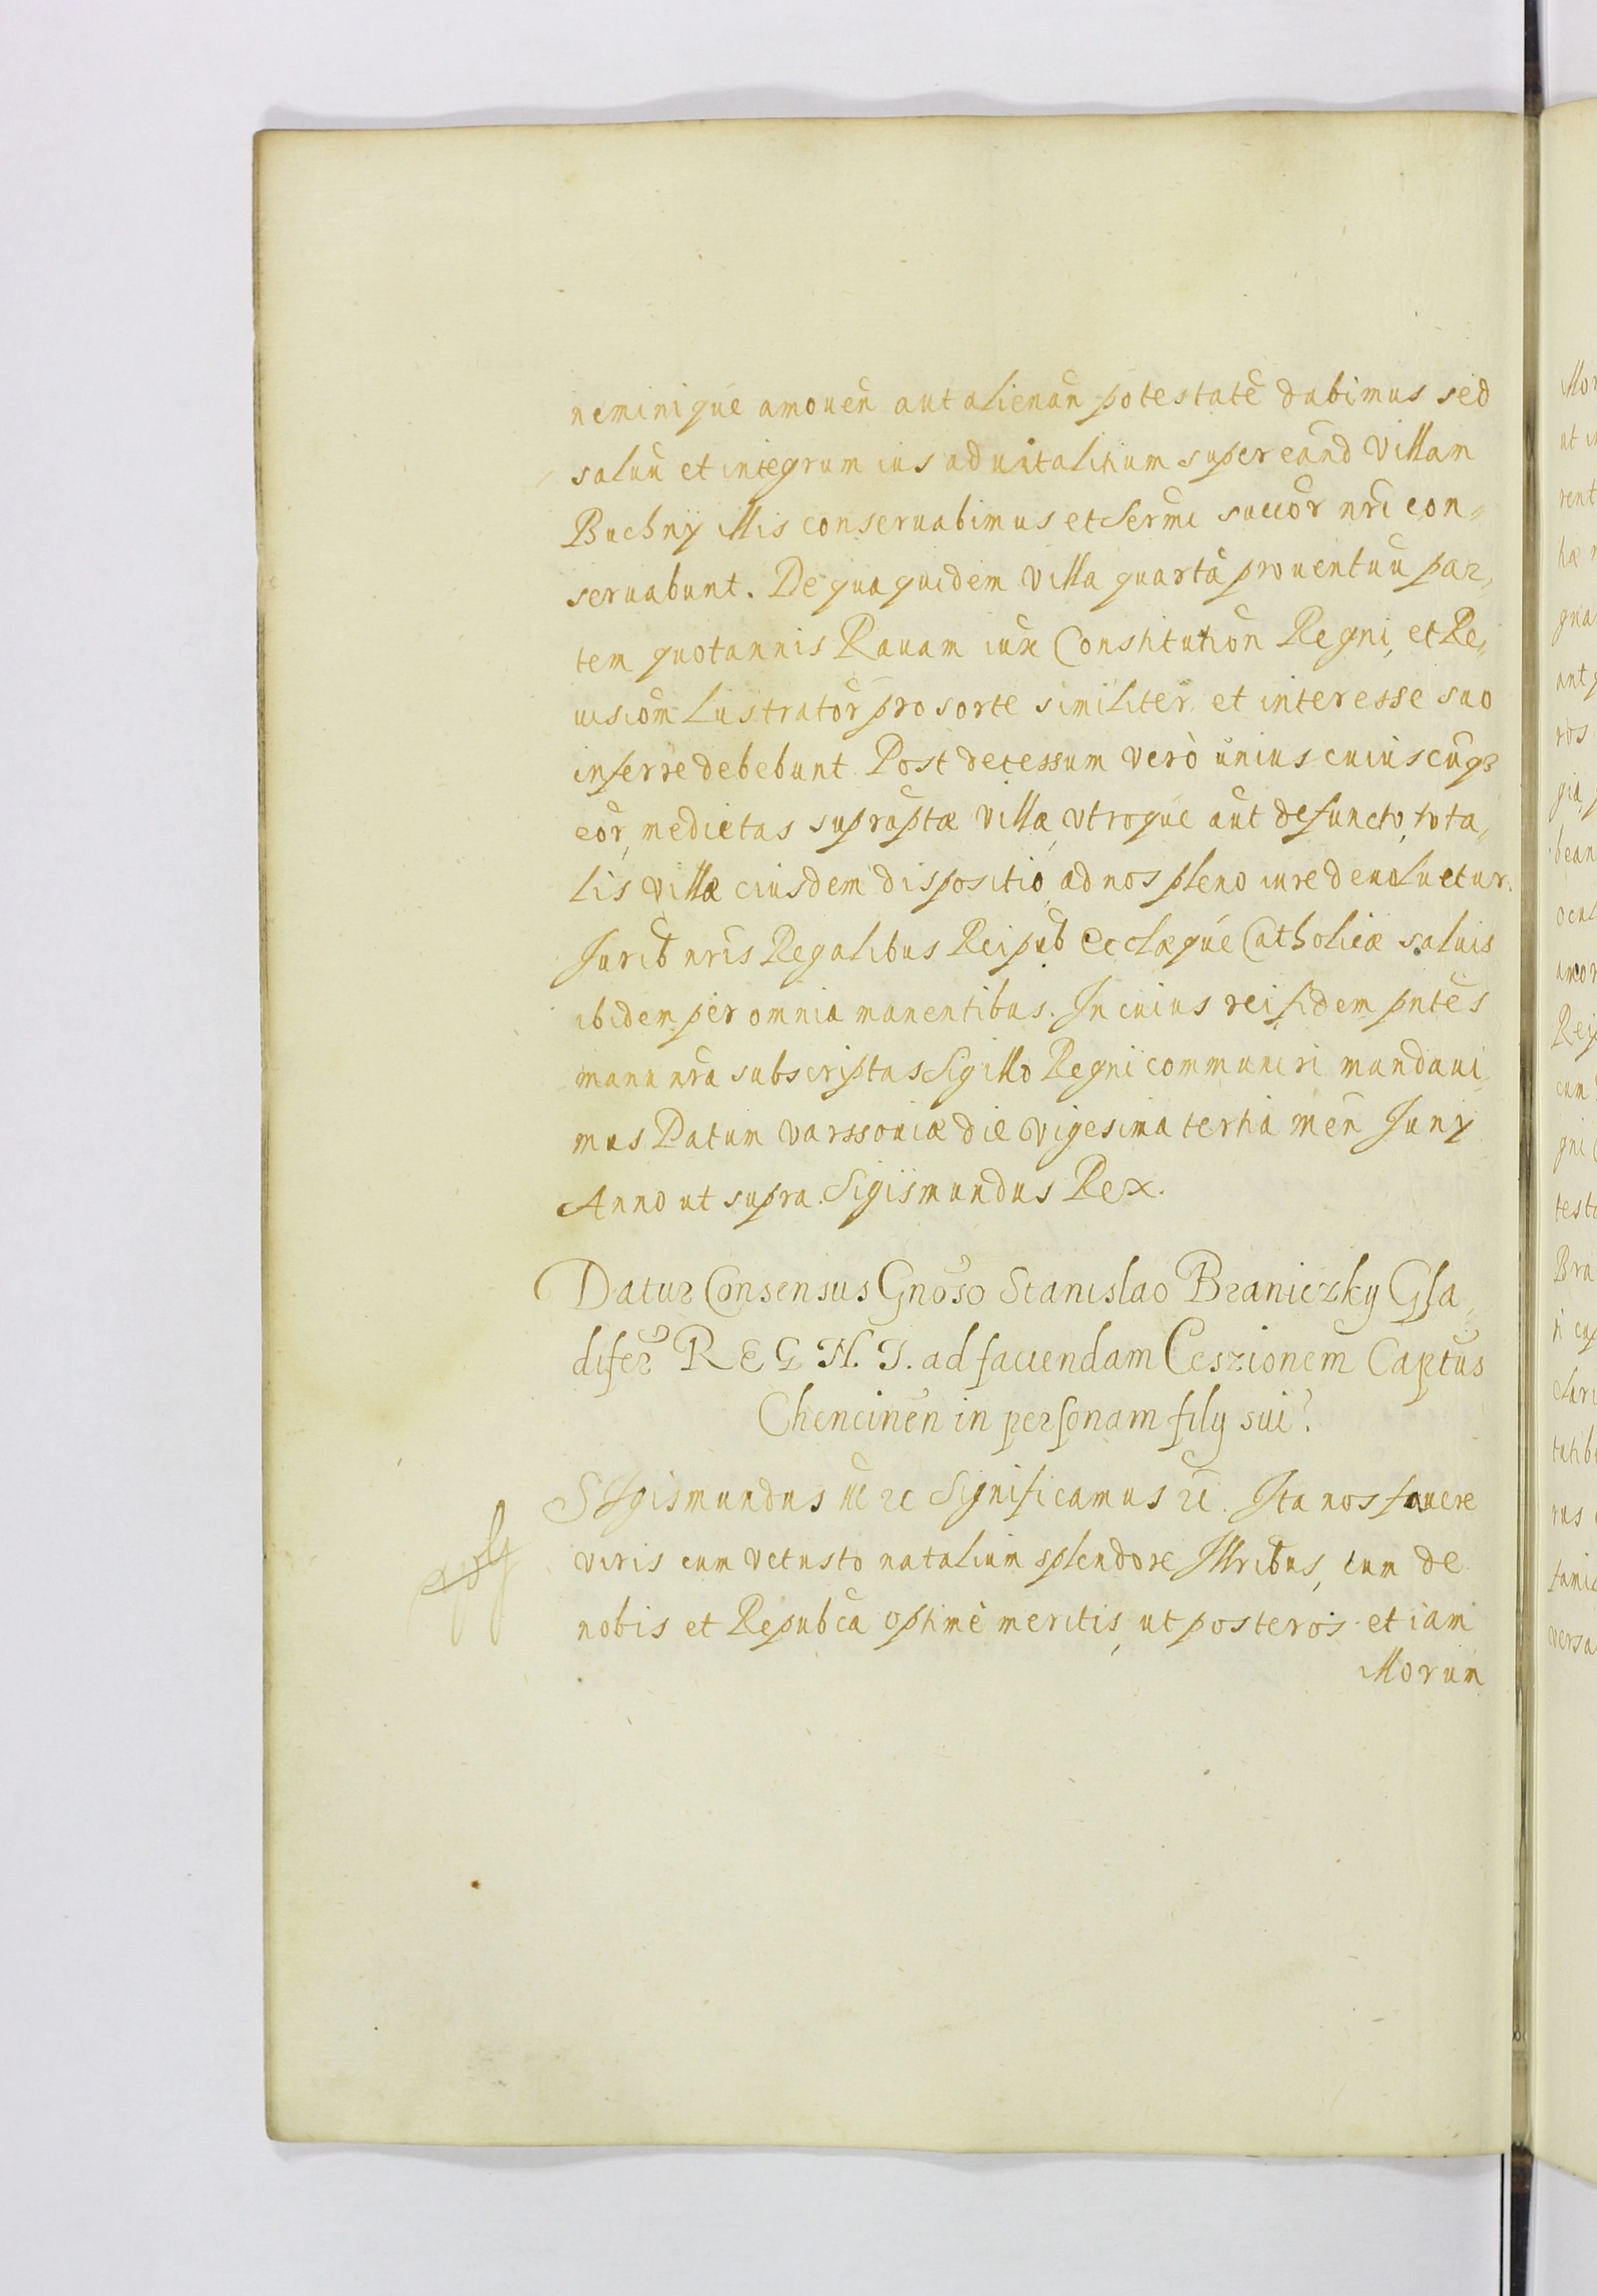 neminique amoueñ aut alienañ potestatẽ dabimus sed
saluũ et integrum ius aduitalitium super eañd Villam
Buchny illis conseruabimus et Serm̃i succor̃ nr̃i con„
seruabunt. De qua quidem Villa quartã prouentuũ par„
tem quotannis Rauam iux̃ Constitution̄ Regni, et Re„
uisiom̃ Lustrator̃ pro sorte similiter et interesse suo
inferre debebunt. Post decessum verò unius cuiuscũqз
eor̃, medietas supraptæ villæ, vtroque aut̃ defuncto, tota„
lis Villæ eiusdem dispositio, ad nos pleno iure deuoluetur.
Jurib̃ nr̃is Regalibus Reipub̃ Ecclæque Catholicæ saluis
ibidem per omnia manentibus. In cuius rei fidem pñtes
manu nr̃a subscriptas Sigillo Regni communiri mandaui„
mus Datum Varssouiæ die Vigesima tertia meñ Juny
Anno ut supra. Sigismundus Rex.
Datur Consensus Gnoso Stanislao Braniczky Gla„
difer̃ REGNI. ad faciendam Ceszionem Captũs
Chencineñ in personam fily sui.
SIgismundus III zc Significamus zc. Ita nos fauere
viris cum vetusto natalium splendore Illribus, tum de
nobis et Repubca optimè meritis, ut posteros etiam
Illorum